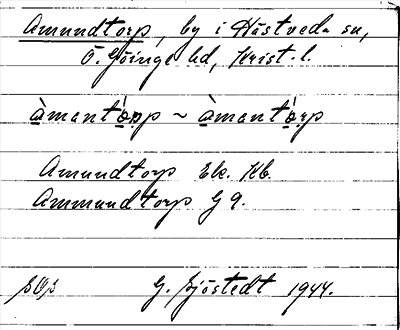 Amundtorp, by i Hästveda sn,
Ö. Göinge hd, Krist. l.
àmantǻrp ~ àmantǻrp
Amundtorp Ek. Kb.
Ammundtorp G 9.
G. Sjöstedt 1944.